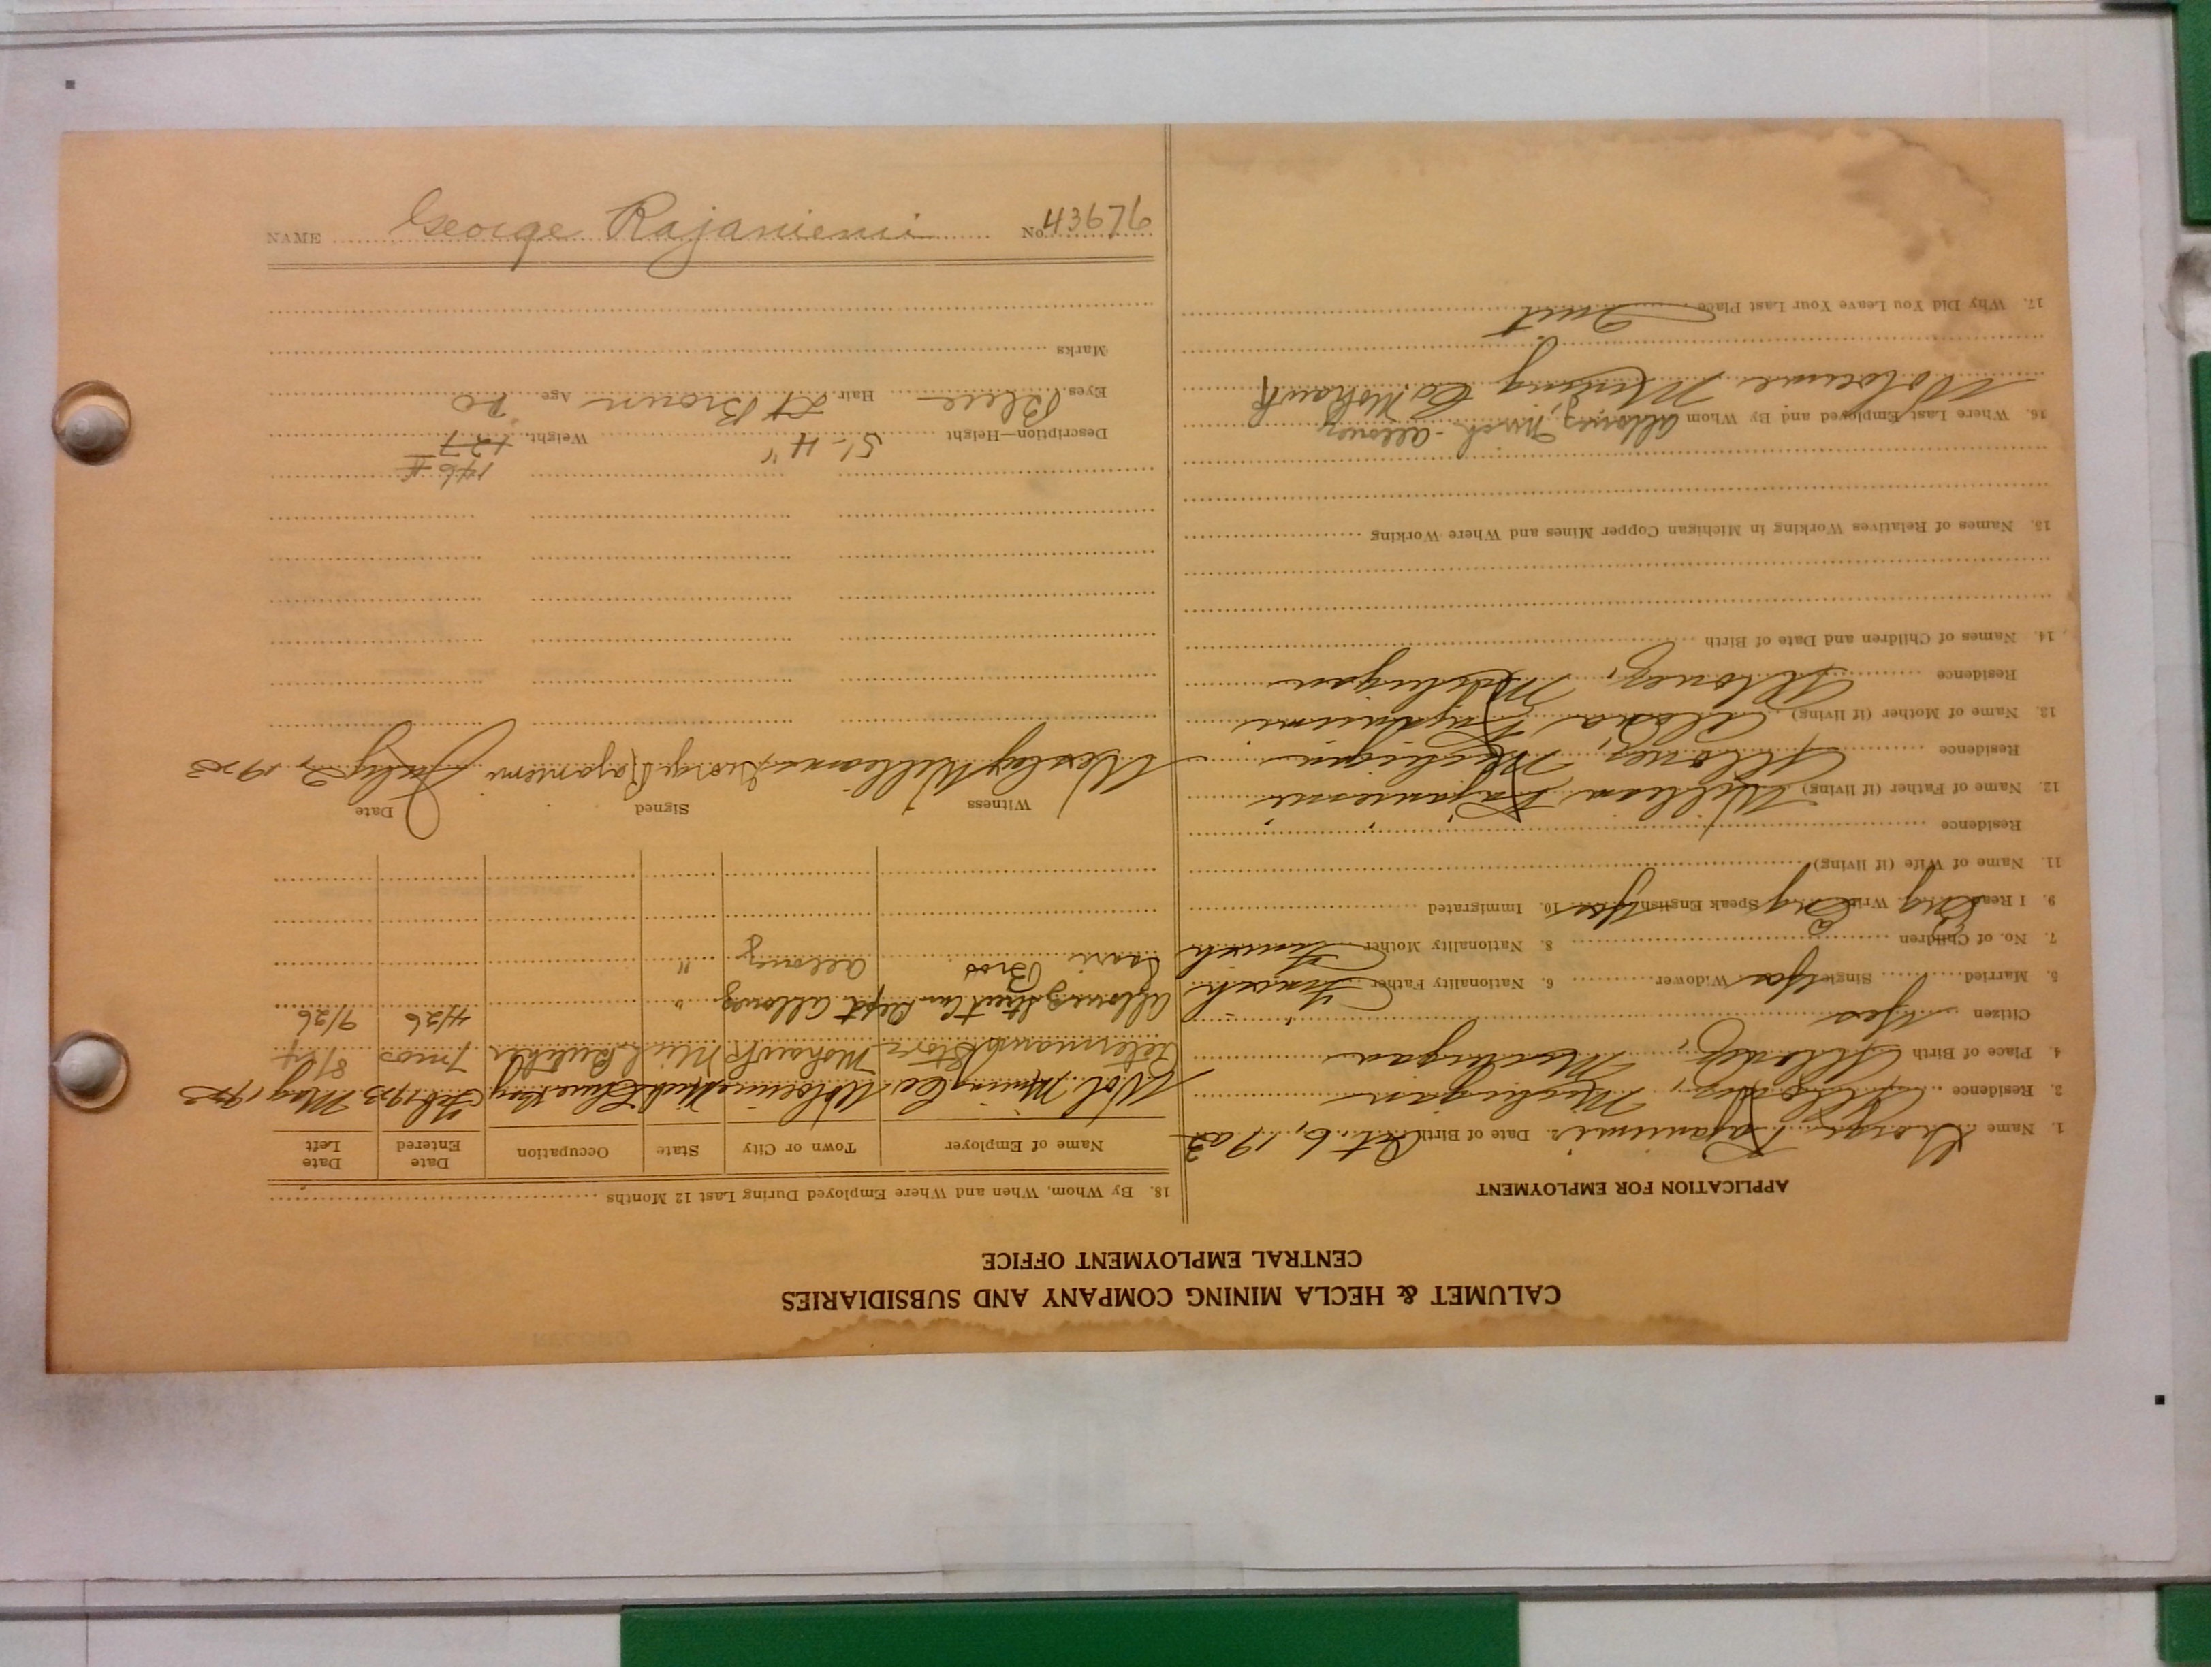 CALUMET & HECLA MINING COMPANY AND SUBSIDIARIES
CENTRAL EMPLOYMENT OFFICE
APPLICATION FOR EMPLOYMENT
1. Name George Rajaniemi 2. Date of Birth Oct. 6, 1902
3. Residence Allouez, Michigan
4. Place of Birth Allouez, Michigan
Citizen Yes
5. Married Single Yes Widower 6. Nationality Father Finnish
7. No. of Children 8. Nationality Mother Finnish
9. I Read Eng Write Eng Speak English Yes 10. Immigrated
11. Name of Wife (if living)
Residence
12. Name of Father (if living) William Rajaniemi
Residence Allouez, Michigan
13. Name of Mother (if living) Rajaniemi
Residence Allouez, Michigan
14. Names of Children and Date of Birth
15. Names of Relatives Working in Michigan Copper Mines and Where Working
16. Where Last Employed and By Whom Allouez, Mich - Allouez
Wolverine Mining Co. Mohawk
17. Why Did You Leave Your Last Place Quit
18. By Whom, When and Where Employed During Last 12 Months
Name of Employer Town or City State Occupation Date Entered Date Left
Wol. Mining Co. Wolverine Mich Feb 1923 May 1923
Store Mohawk Mich 7 mos 8/24
Allouez Street Car Dept Allouez " 4/26 9/26
Bros Allouez "
Witness Signed Date
Wesley Williams George Rajaniemi July 2, 1923
146 #
Description—Height 5'-4" Weight 127
Eyes Blue Hair Lt Brown Age 20
Marks
NAME George Rajaniemi No 43676